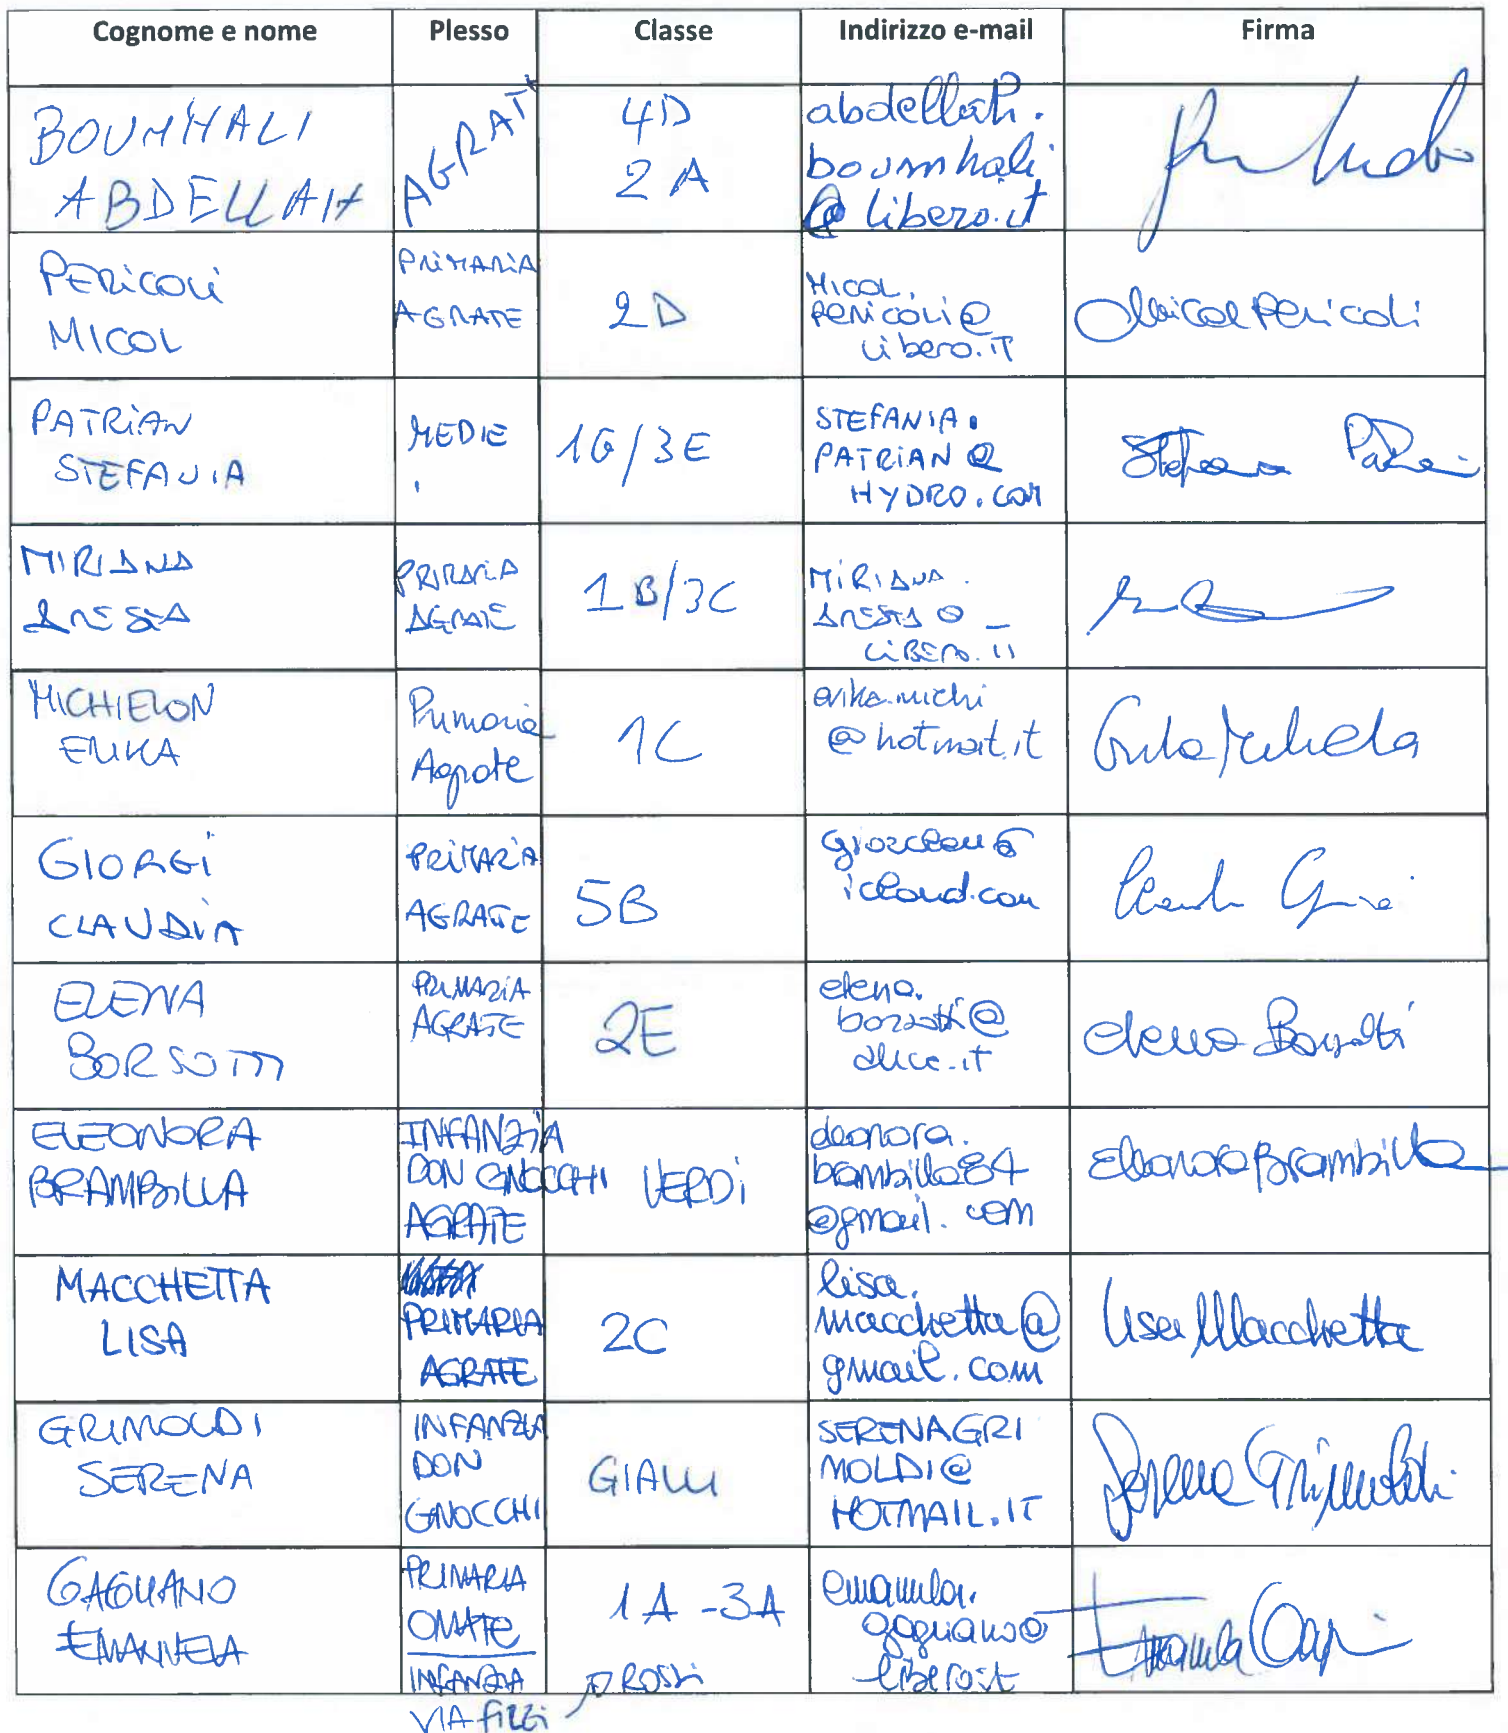 Cognome e nome Plesso Classe Indirizzo e-mail Firma
BOUMHALI
ABDELLAH
AGRATE
4D
2A
abdellah.
boumhali
@libero.it
PERICOLI
MICOL
PRIMARIA
AGRATE
2D
MICOL.
PERICOLI@
libero.iT
Micol Pericoli
PATRIAN
STEFANIA
MEDIE
1G/3E
STEFANIA.
PATRIAN@
HYDRO.COM
Stefania
MIRIANA
ARESTA
PRIMARIA
AGRATE
1B/3C
MIRIANA.
ARESTA@
LIBERO.IT
MICHIELON
ERIKA
Primaria
Agrate
1C
erika.michi
@hotmail.it
GIORGI
CLAUDIA
PRIMARIA
AGRATE
5B
icloud.com
ELENA
BORSOTTI
PRIMARIA
AGRATE
2E
elena.
borsotti@
alice.it
Elena Borsotti
ELEONORA
BRAMBILLA
INFANZIA
DON GNOCCHI
AGRATE
VERDI
eleonora.
brambilla84
@gmail.com
Eleonora Brambilla
MACCHETTA
LISA
PRIMARIA
AGRATE
2C
lisa.
macchetta@
gmail.com
Lisa Macchetta
GRIMOLDI
SERENA
INFANZIA
DON
GNOCCHI
GIALLI
SERENAGRI
MOLDI@
HOTMAIL.IT
Serena Grimoldi
GAGLIANO
EMANUELA
PRIMARIA
OMATE
INFANZIA
VIA FILZI
1A - 3A
ROSSI
emanuela.
gagliano@
libero.it
Emanuela